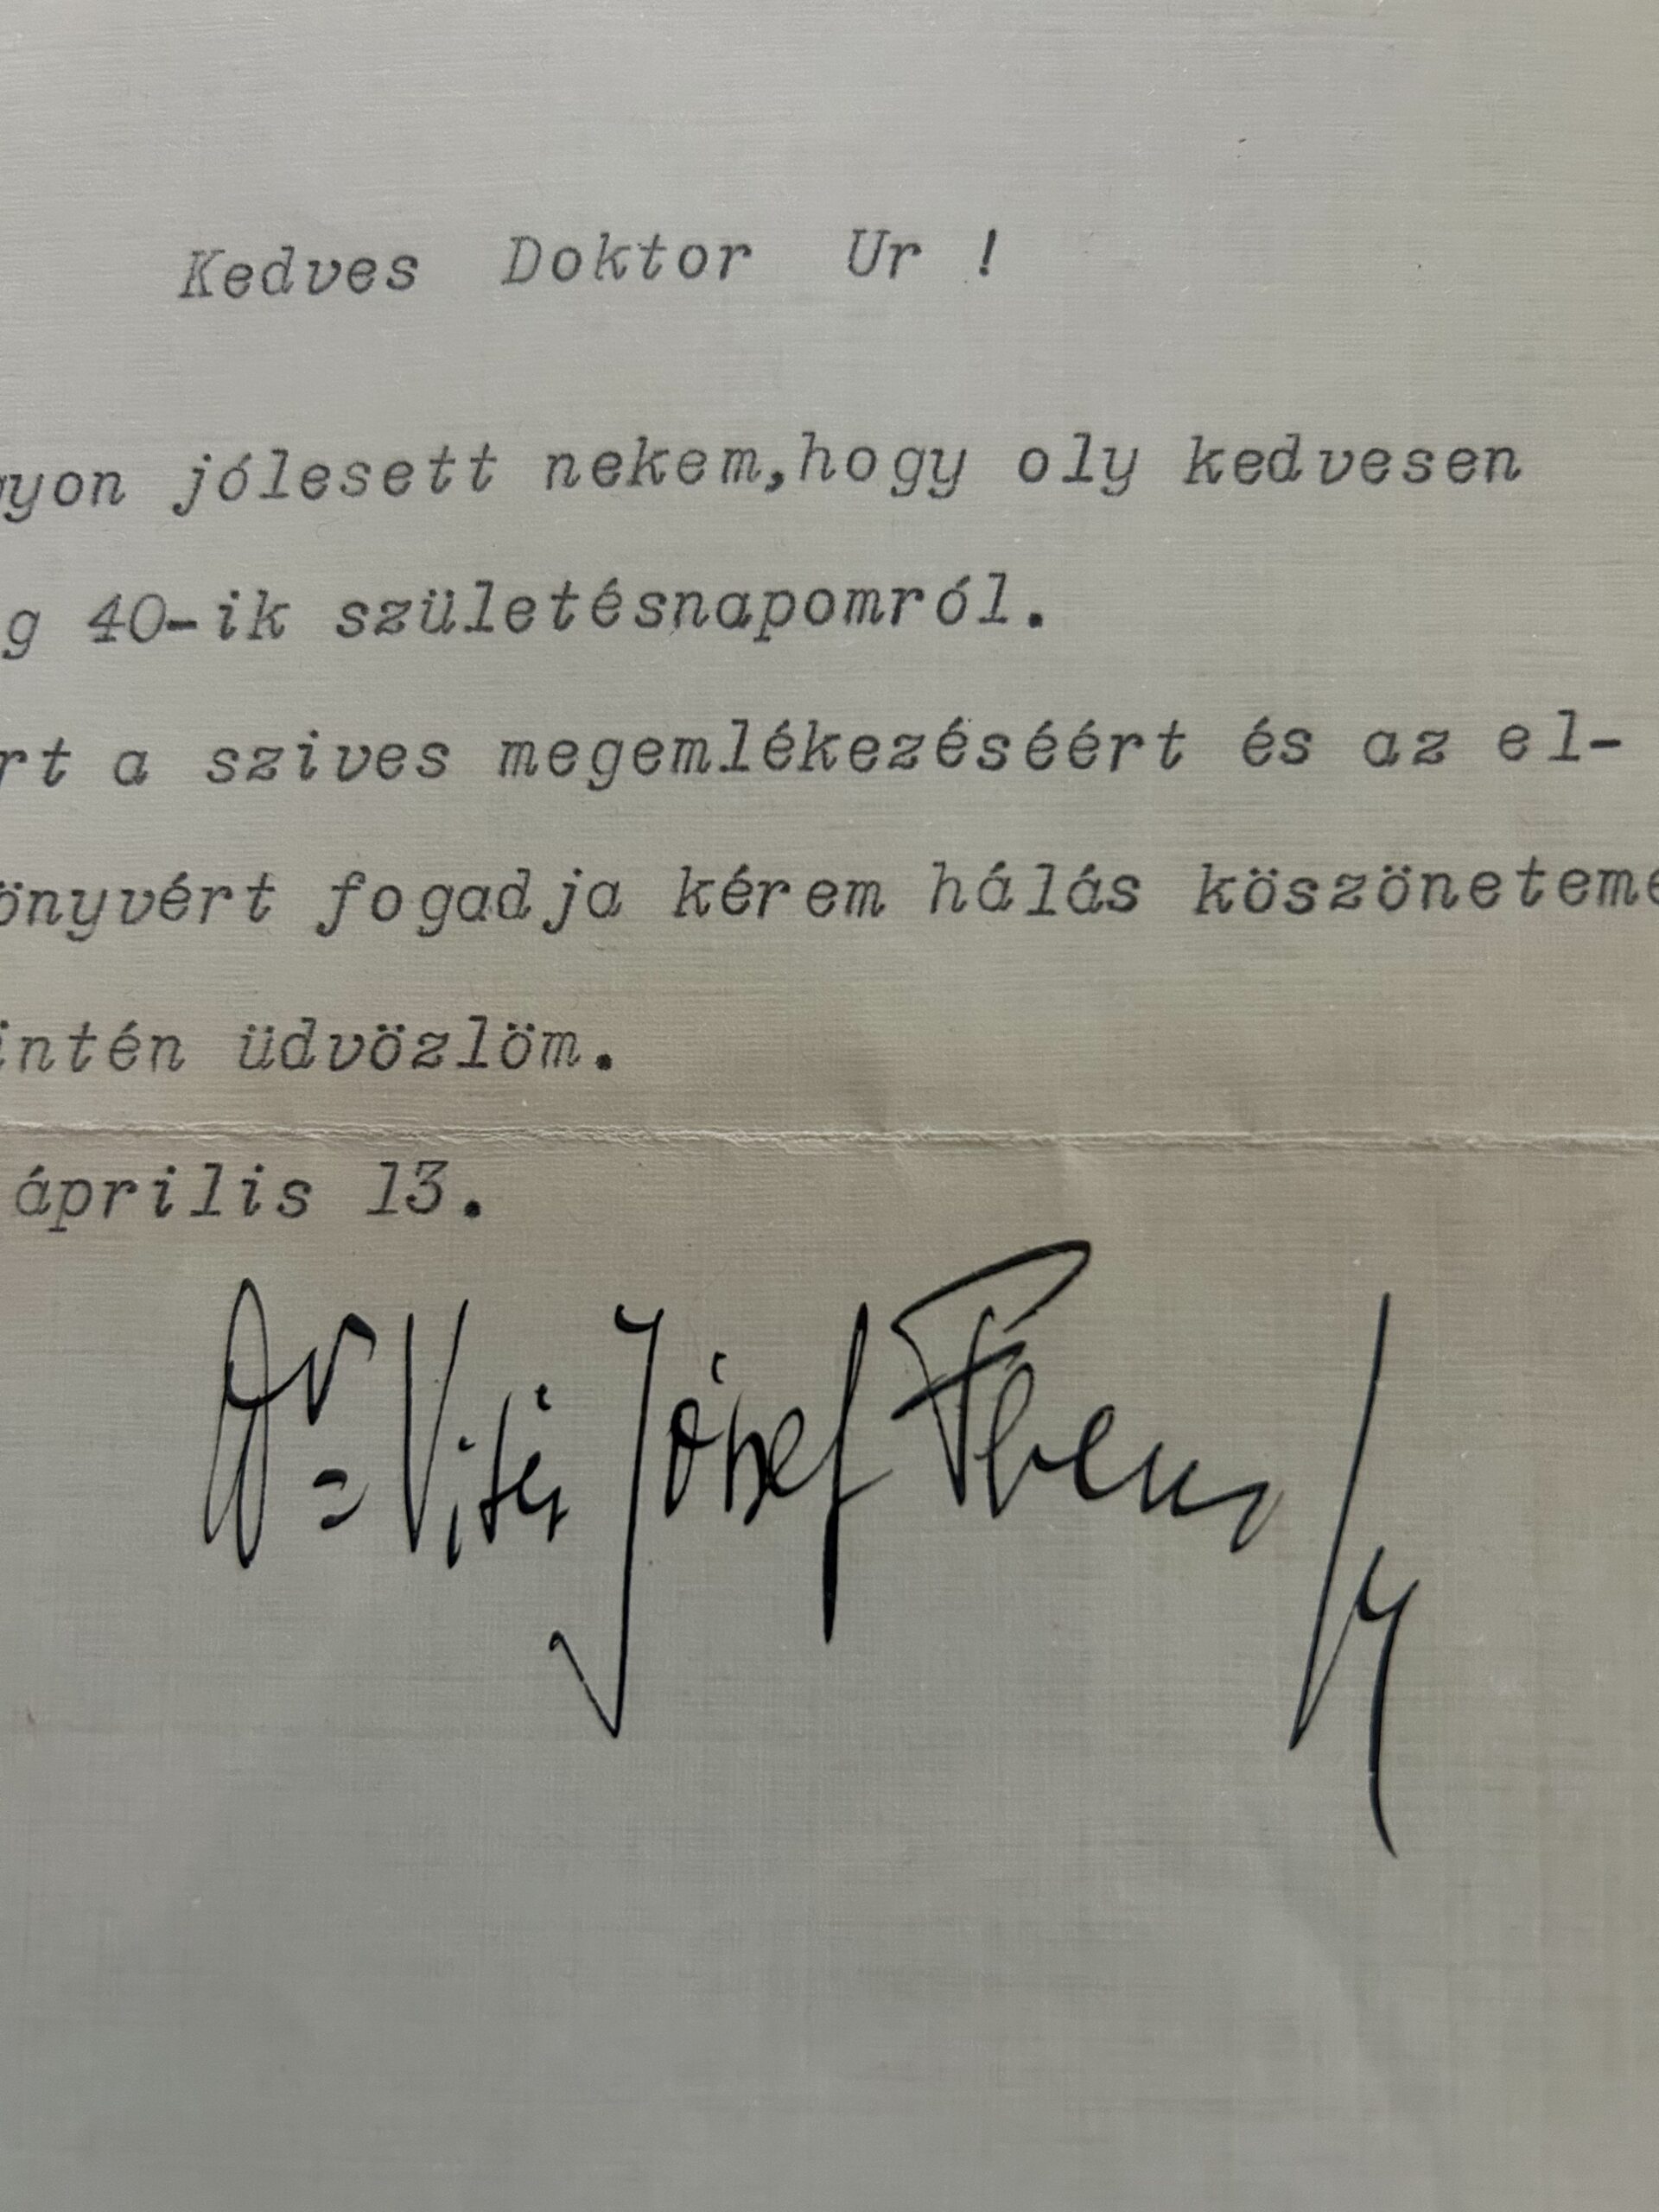 Kedves Doktor Ur !
gyon jólesett nekem,hogy oly kedvesen
g 40-ik születésnapomról.
rt a szives megemlékezéséért és az el-
önyvért fogadja kérem hálás köszöneteme
intén üdvözlöm.
április 13.
Dr Vitéz József Ferenc